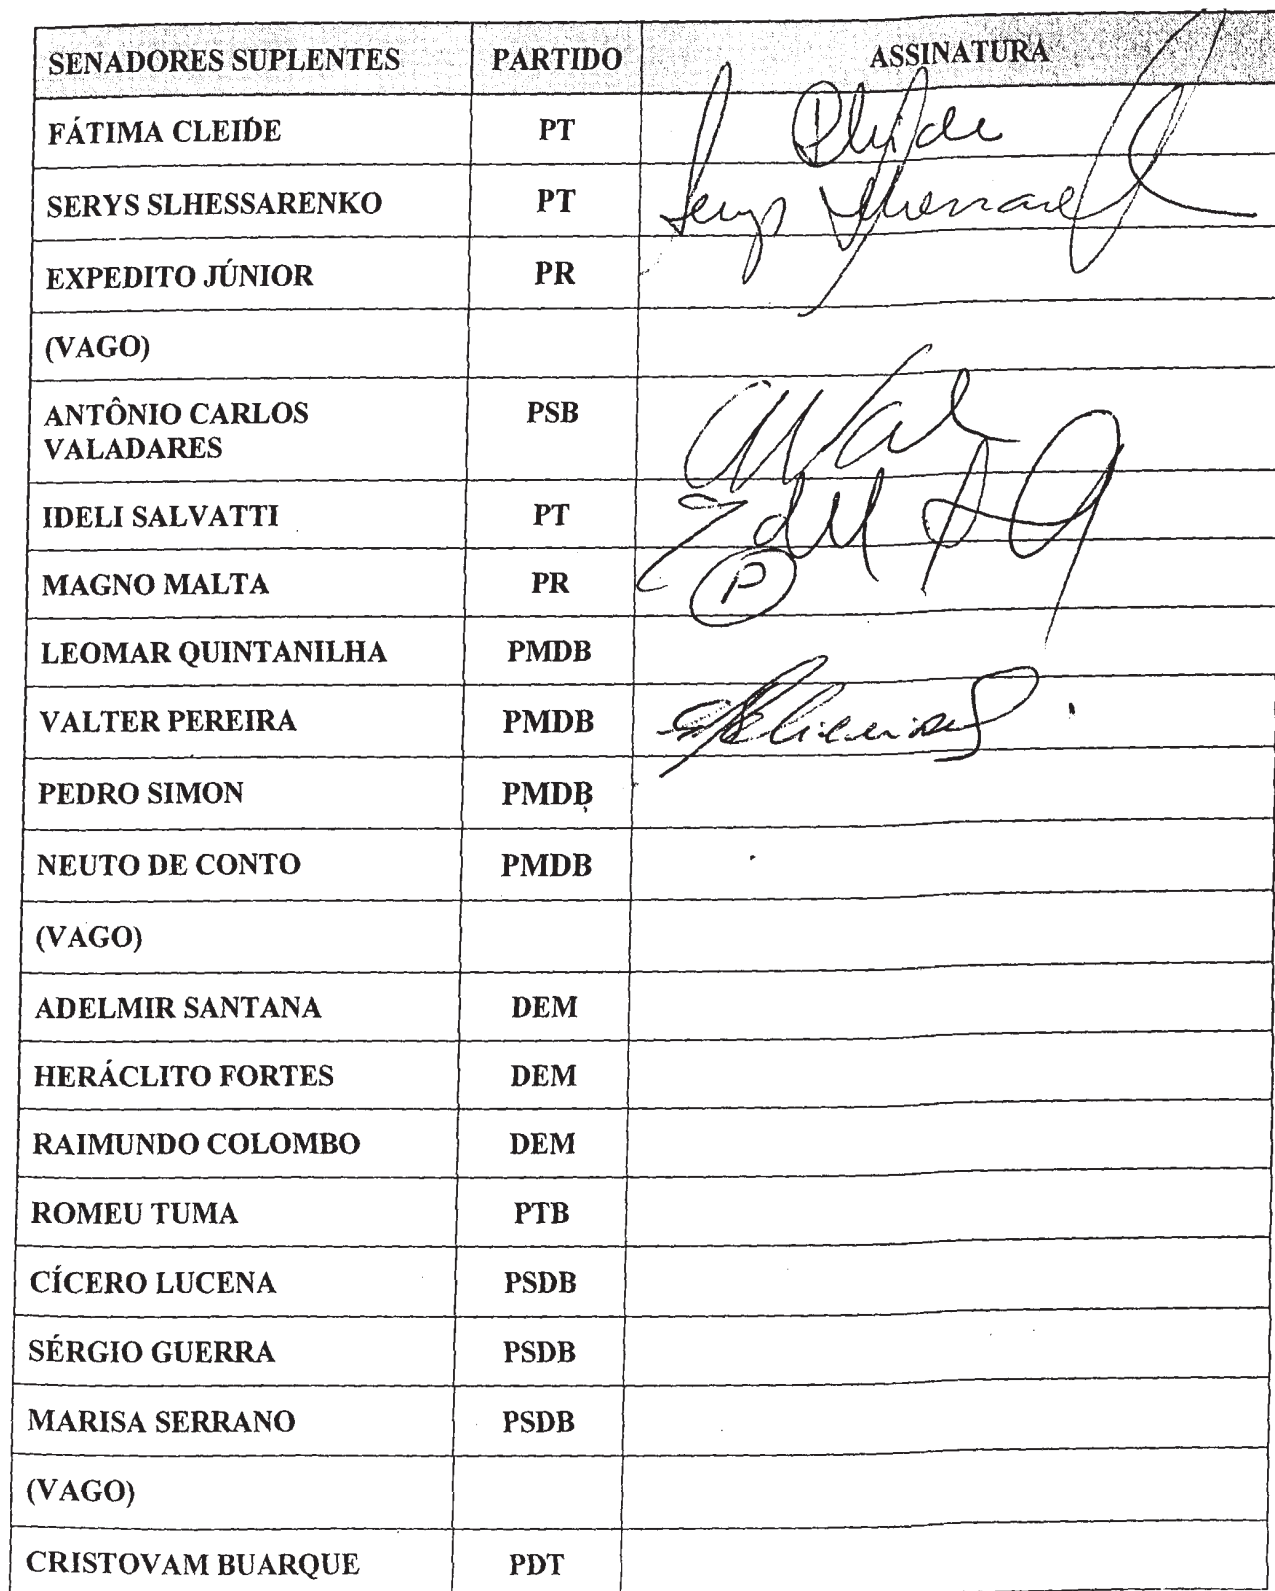 SENADORES SUPLENTES PARTIDO ASSINATURA
FÁTIMA CLEIDE PT
SERYS SLHESSARENKO PT Serys
EXPEDITO JÚNIOR PR
(VAGO)
ANTÔNIO CARLOS PSB
VALADARES
IDELI SALVATTI PT
MAGNO MALTA PR P
LEOMAR QUINTANILHA PMDB
VALTER PEREIRA PMDB
PEDRO SIMON PMDB
NEUTO DE CONTO PMDB
(VAGO)
ADELMIR SANTANA DEM
HERÁCLITO FORTES DEM
RAIMUNDO COLOMBO DEM
ROMEU TUMA PTB
CÍCERO LUCENA PSDB
SÉRGIO GUERRA PSDB
MARISA SERRANO PSDB
(VAGO)
CRISTOVAM BUARQUE PDT